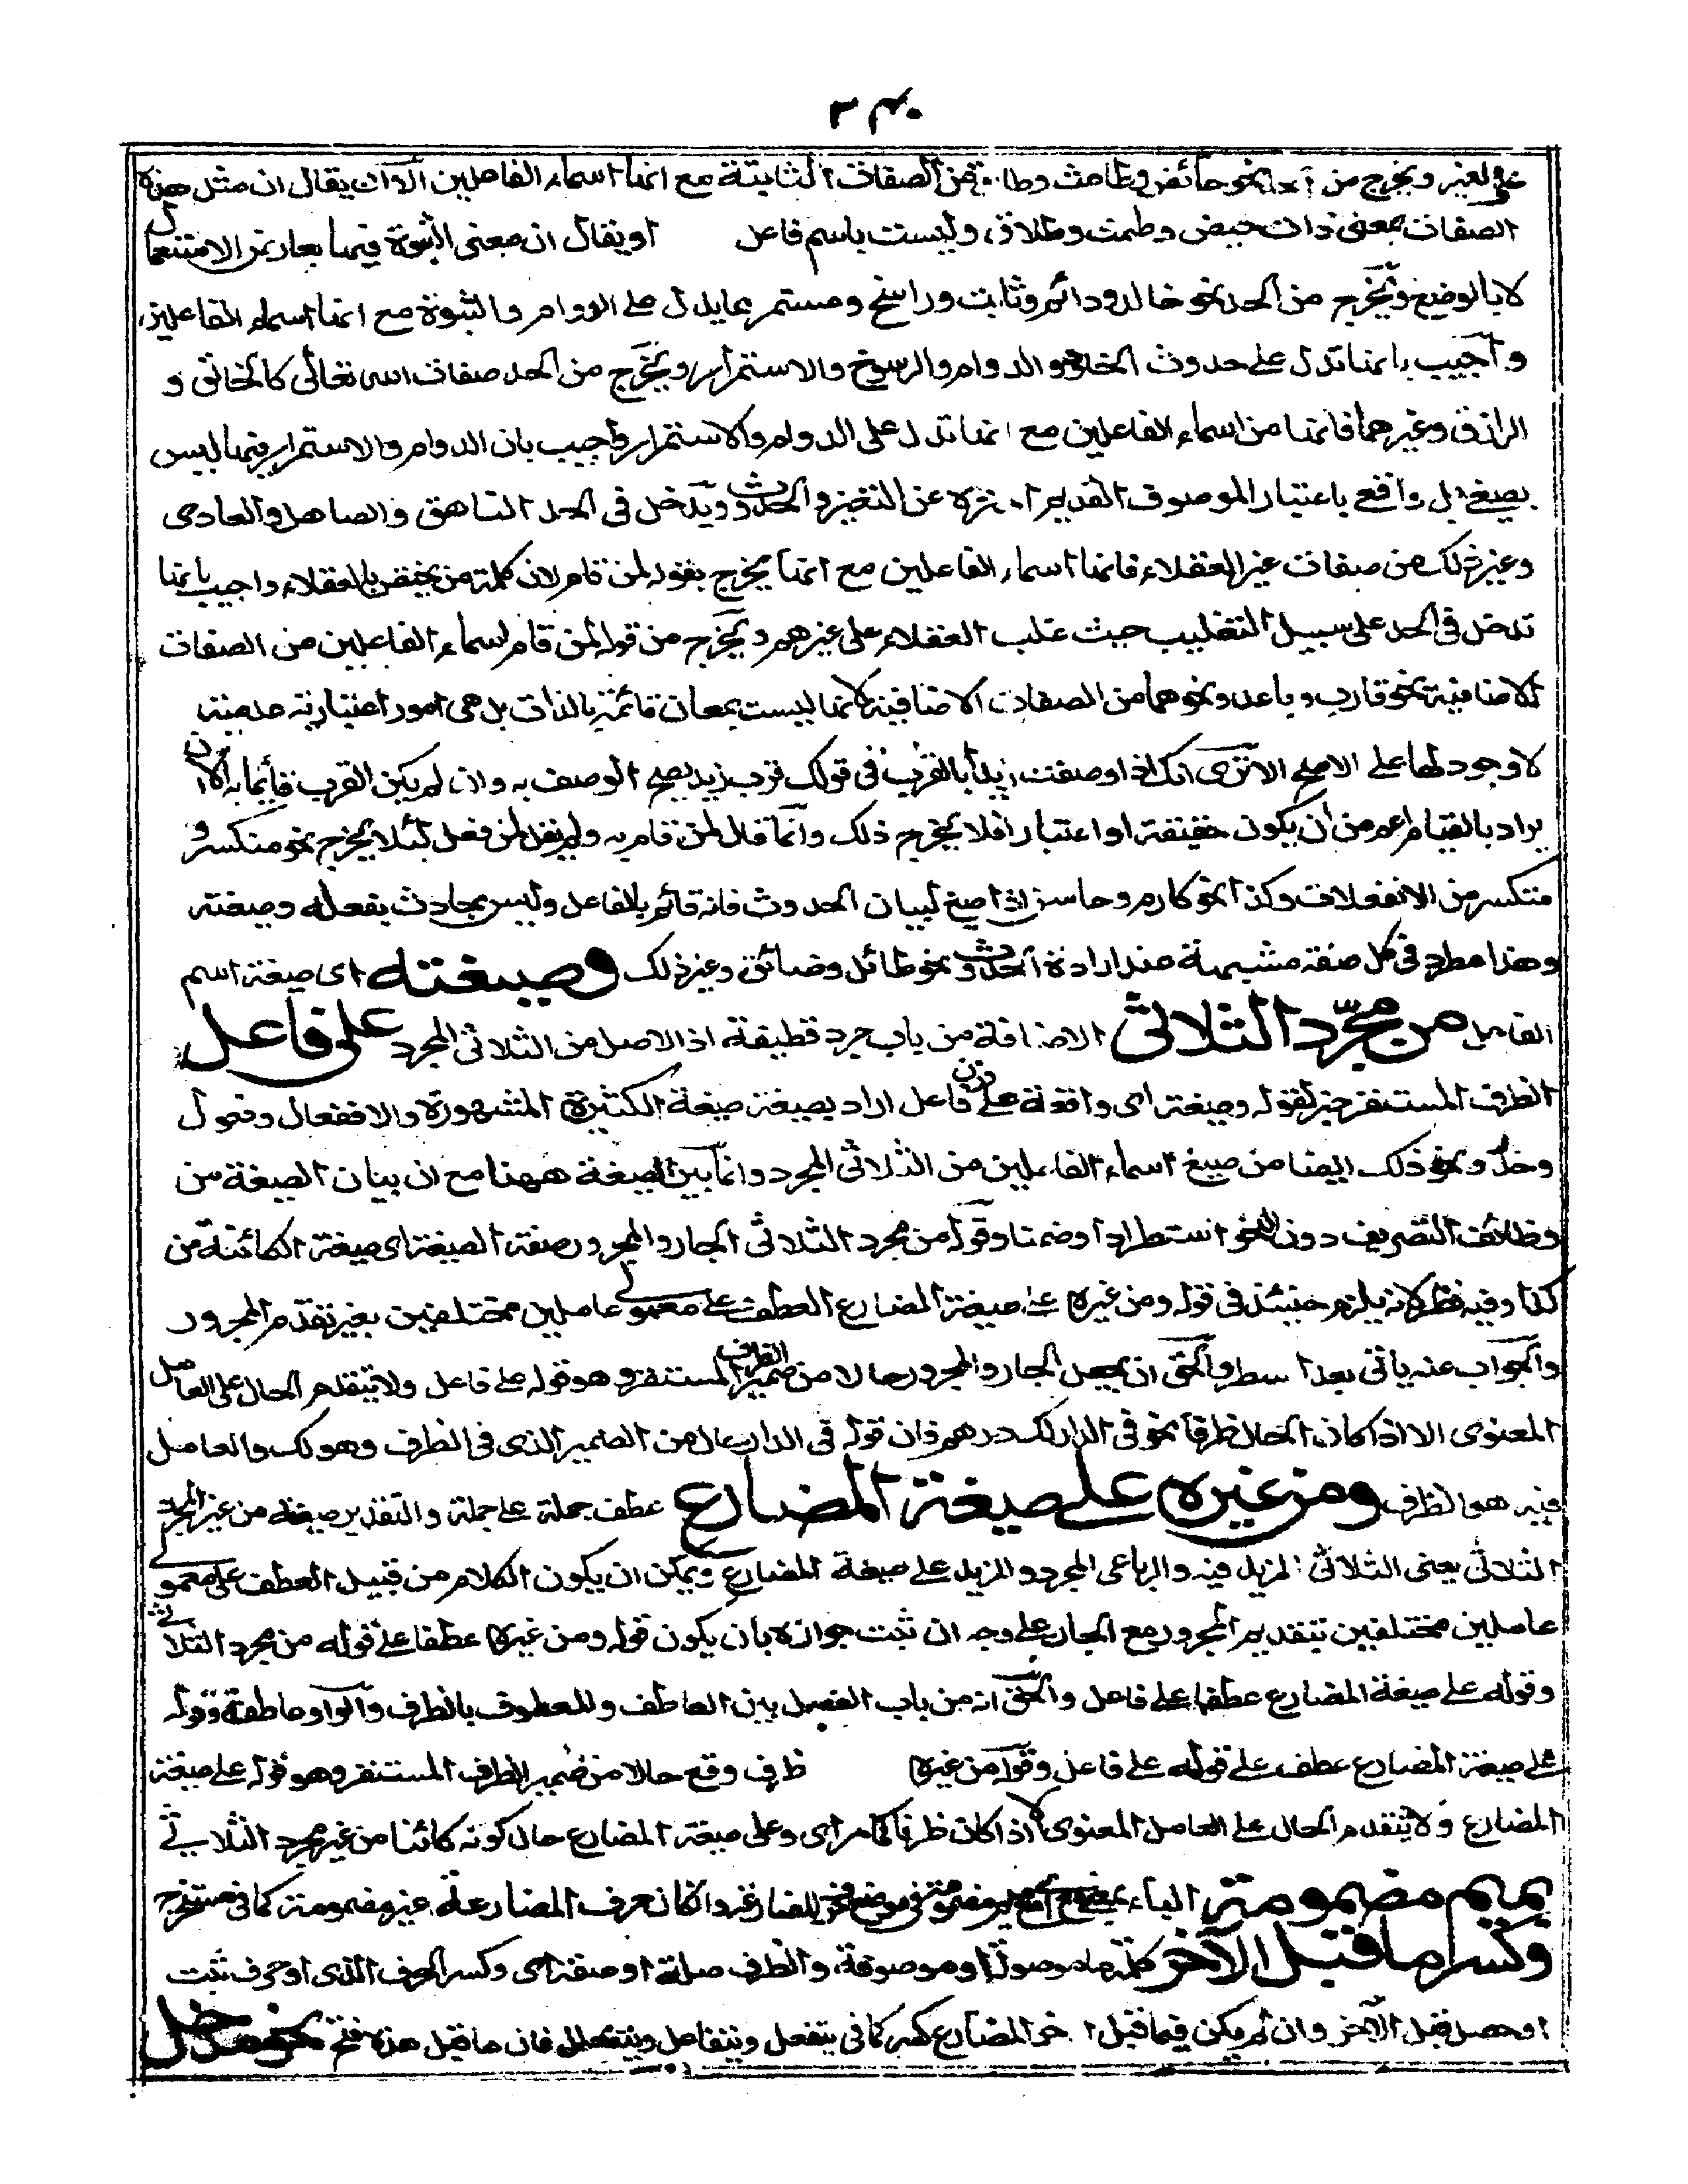 على الغير ويخرج من الحد نحو حائض وطامث وطالق من الصفات الثابتة مع انها اسماء الفاعلين الا ان يقال ان مثل هذه
الصفات بمعنى ذات حيض وطمث وطلاق وليست باسم فاعل او يقال ان معنى الثبوة فيها بعارض الاستعمال
لا بالوضع ويخرج من الحد نحو خالد ودائم وثابت وراسخ ومستمر بما يدل على الدوام والثبوة مع انها اسماء الفاعلين
واجيب بانها تدل على حدوث الخلود والدوام والرسوخ والاستمرار ويخرج من الحد صفات الله تعالى كالخالق و
الرازق وغيرهما فانها من اسماء الفاعلين مع انها تدل على الدوام والاستمرار واجيب بان الدوام والاستمرار فيها ليس
بصيغ بل واقع باعتبار الموصوف القديم نزه عن التغير والحدوث ويدخل في الحد الناهق والصاهل والعادى
وغير ذلك من صفات غير العقلاء فانها اسماء الفاعلين مع انها يخرج بقوله لمن قام لان كلمة من يختص بالعقلاء واجيب بانها
تدخل في الحد على سبيل التغليب حيث غلب العقلاء على غيرهم ويخرج من قوله لمن قام اسماء الفاعلين من الصفات
الاضافية نحو قارب وباعد ونحوهما من الصفات الاضافية لانها ليست بمعان قائمة بالذات بل هى امور اعتبارية عدمية
لا وجود لها على الاصح الا ترى انك اذا وصفت زيدا بالقرب في قولك قرب زيد يصح الوصف به وان لم يكن القرب قائما به الا ان
يراد بالقيام اعم من ان يكون حقيقة او اعتبارا فلا يخرج ذلك وانما قال لمن قام به ولم يقل لمن فعل لئلا يخرج نحو منكسر و
متكسر من الانفعلات وكذا نحو كارم وحاسن اذا صيغ لبيان الحدوث فانه قائم بالفاعل وليس بحادث بفعله وصيغته
وهذا مطرد في كل صفة مشبهة عند ارادة الحدوث نحو طائل وضائق وغير ذلك وصيغته اى صيغة اسم
الفاعل من مجرد الثلاثى الاضافة من باب جرد قطيفة اذ الاصل من الثلاثى المجرد على فاعل
الظرف المستقر خبر لقوله وصيغته اى واقعة على وزن فاعل اراد بصيغته صيغة الكثيرة المشهورة والا ففعال وفعول
وخل ونحو ذلك ايضا من صيغ اسماء الفاعلين من الثلاثى المجرد وانما بين الصيغة ههنا مع ان بيان الصيغة من
وظائف التصريف دون النحو استطرادا وضمنا وقوله من مجرد الثلاثى الجار والمجرور صفة الصيغة اى صيغة الكائنة من
كذا وفيه نظر لانه يلزم حينئذ في قوله ومن غيره على صيغة المضارع العطف على معمولى عاملين مختلفين بغير تقدم المجرور
والجواب عنه ياتى بعد اسطر والحق ان يجعل الجار والمجرور حالا من ضمير الظرف المستقر وهو قوله على فاعل ولا يتقدم الحال على العامل
المعنوى الا اذا كان الحال ظرفا نحو في الدار لك درهم فان قوله في الدار حال من الضمير الذى في الظرف وهو لك والعامل
فيه هو الظرف ومن غيره على صيغة المضارع عطف جملة على جملة والتقدير صيغته من غير المجرد
الثلاثى يعنى الثلاثى المزيد فيه والرباعى المجرد والمزيد على صيغة المضارع ويمكن ان يكون الكلام من قبيل العطف على معمولى
عاملين مختلفين بتقديم المجرور مع الجار على وجه ان ثبت جوازه بان يكون قوله ومن غيره عطفا على قوله من مجرد الثلاثى
وقوله على صيغة المضارع عطفا على فاعل والحق انه من باب الفصل بين العاطف والمعطوف بالظرف والواو عاطفة وقوله
على صيغة المضارع عطف على قوله على فاعل وقوله من غيره ظرف وقع حالا من ضمير الظرف المستقر وهو قوله على صيغة
المضارع ولا يتقدم الحال على العامل المعنوى الا اذا كان ظرفا كما مر اى وعلى صيغة المضارع حال كونه كائنا من غير مجرد الثلاثى
بميم مضمومة الباء حرف المضارعة وان كان حرف المضارعة غير مضمومة كما في مستخرج
وكسر ما قبل الآخر كلمة ما موصولة او موصوفة والظرف صلة او صفة اى وكسر الحرف الذى او حرف ثبت
او حصل قبل الآخر وان لم يكن فيما قبل آخر المضارع كسر كما في يتفعل ويتفاعل ويتفعلل فان ما قبل هذه فتح نحو مدخل